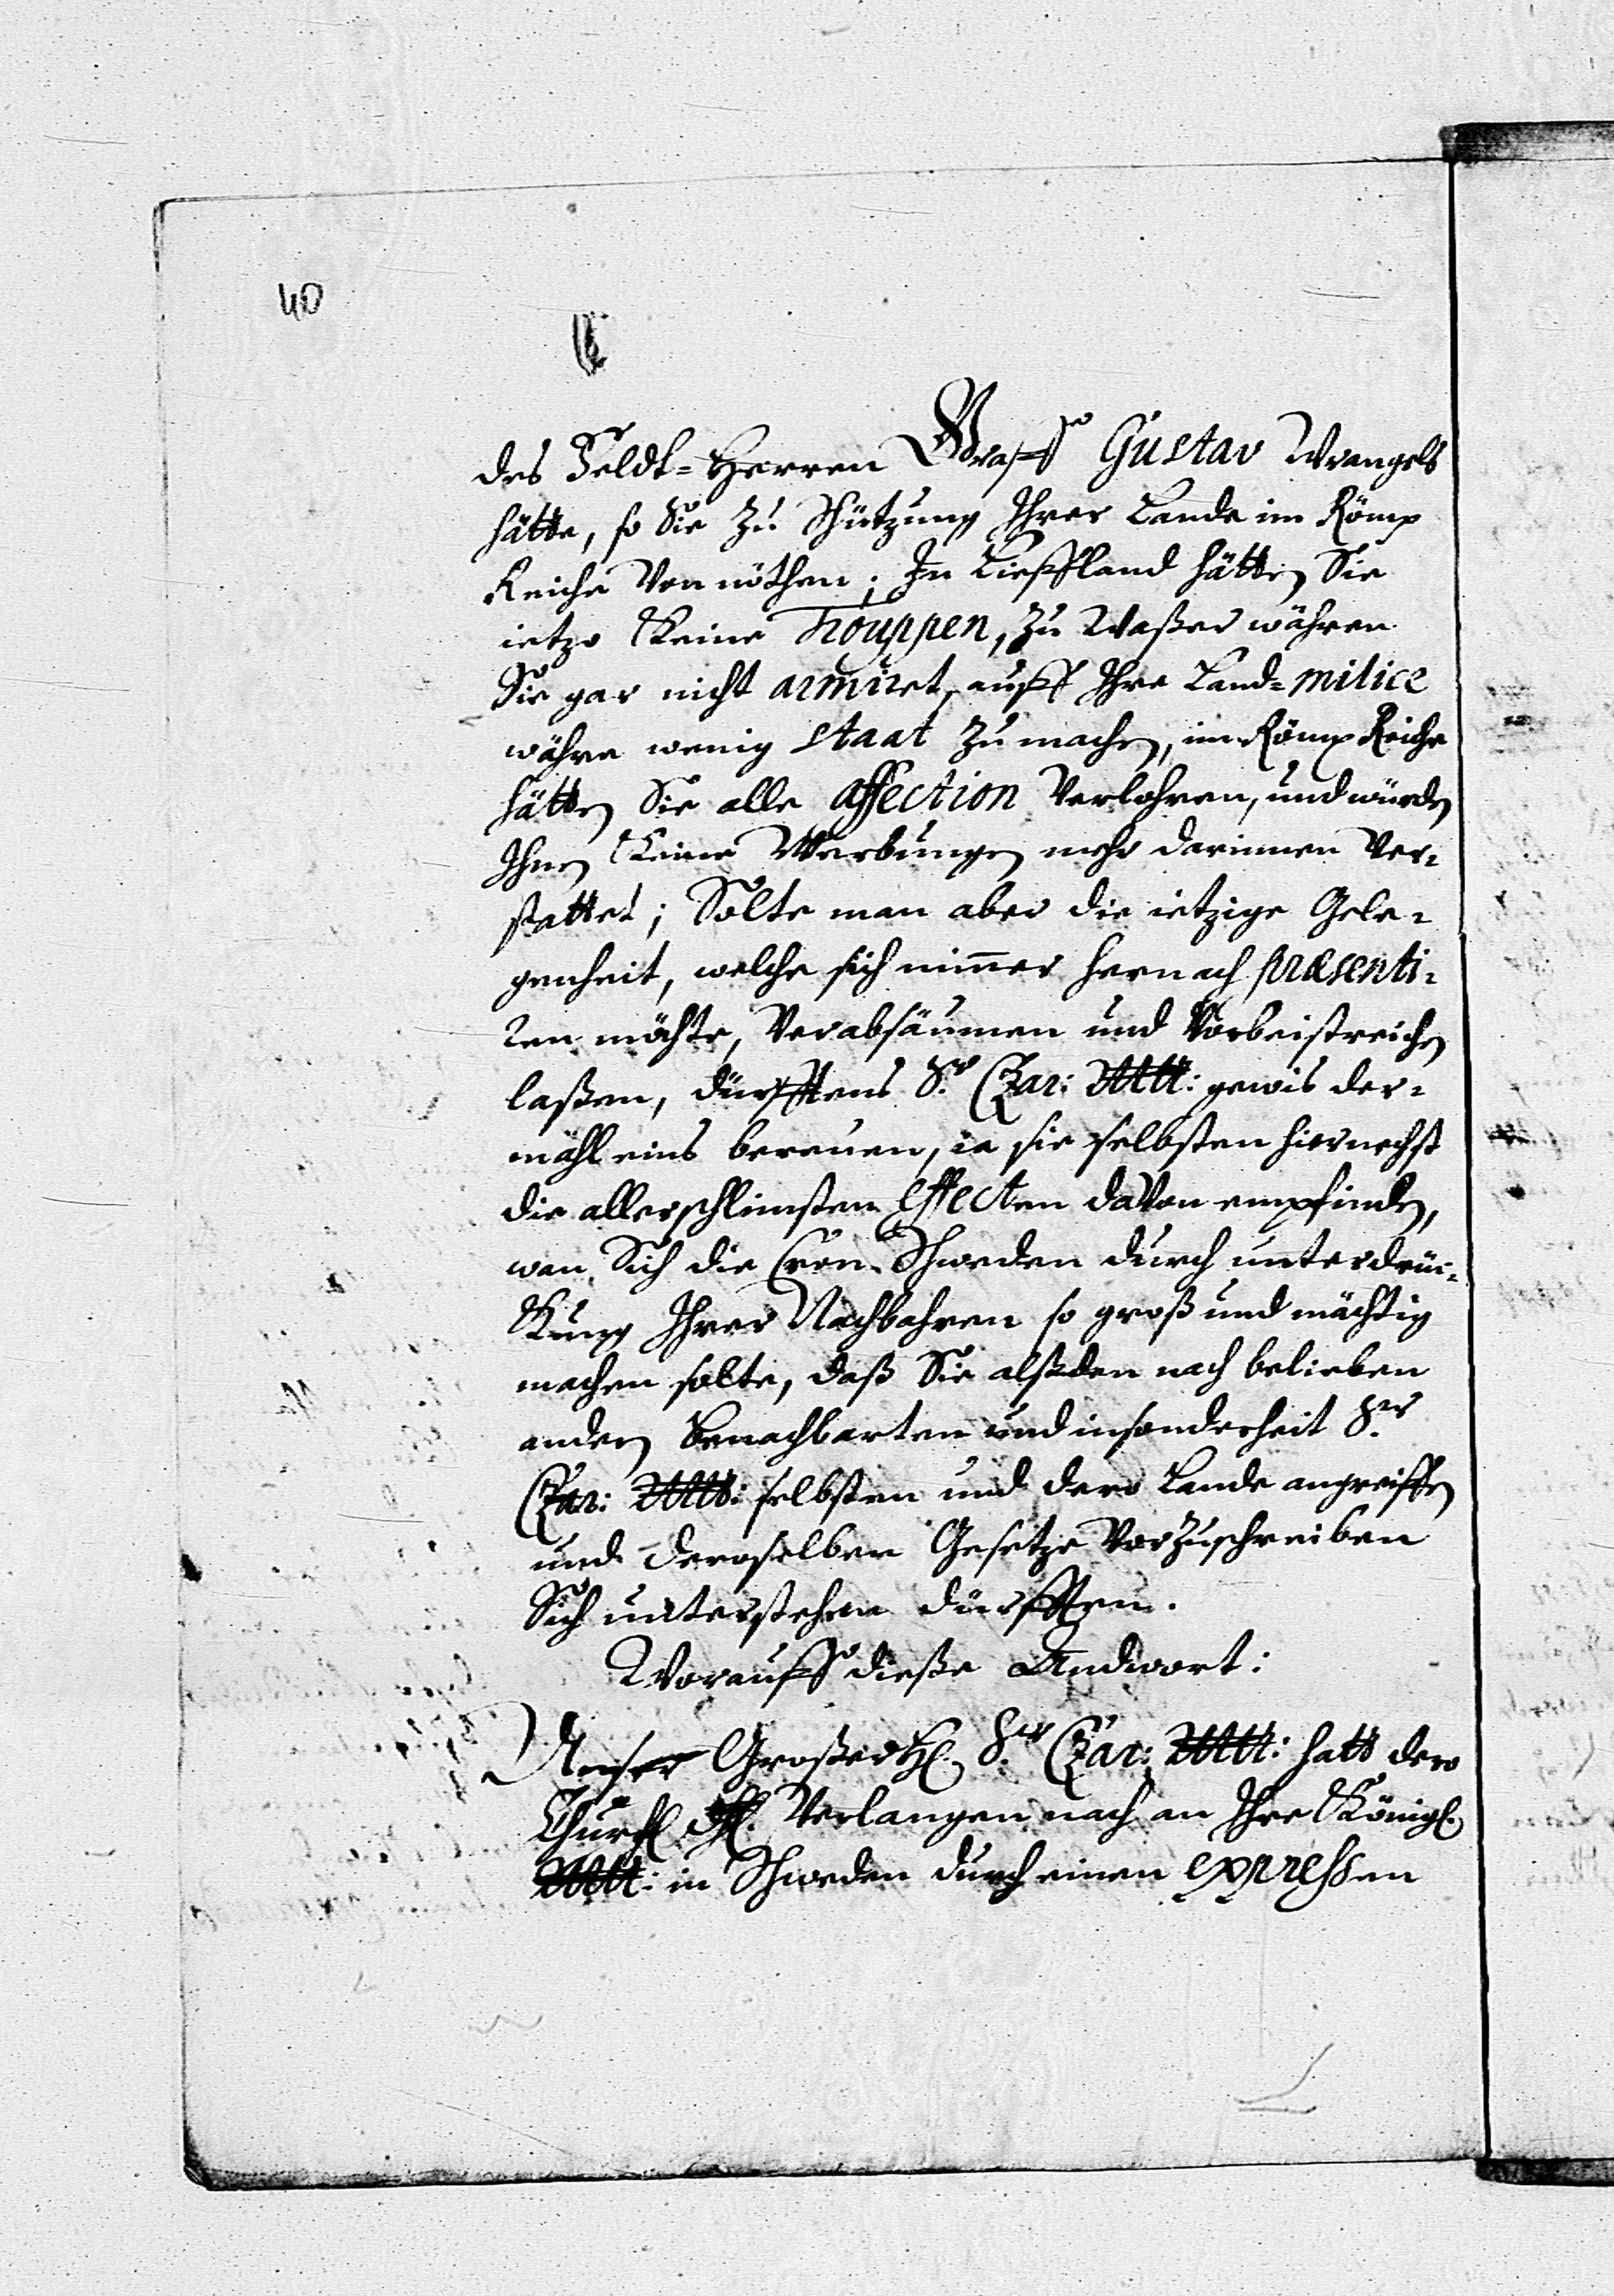 40
des Feldt=Herren Graff Gustav Wrangels
hätte, so Sie zu Schützung Ihrer Lande im Römp
Reiche von nöthen; In Liefflandt hätten Sie
ietzo Keine Trouppen, zu Waßer währen
Sie gar nicht armiret, auff Ihre Land=milice
währe wenig staat zu machen, im Römp Reiche
hätten Sie alle affection Verlohren, und würden
Ihnen Keine Werbungen mehr darinnen Ver=
stattet; Solte man aber die ietzige Gele=
genheit, welche sich nimer hernach præsenti=
ren möchte, Verabsäumen und Vorbeistreichen
laßen, dürfftens S.r Czar: Mtt: gewis der=
mahl eins bereuen, ia sie selbsten hiernechst
die allerschlimsten effecten davon empfinden,
wan Sich die Cron Schweden durch unterdrü=
Kung Ihrer Nachbahren so groß und mächtig
machen solte, daß Sie alßden nach belieben
andern Benachbarten und insonderheit S.er
Czar: Mtt: selbsten und dero Lande angreiffen
und deroselben Gesetze Vorzuschreiben
Sich unterstehen dürfften.
Worauff dieße Andwort:
Unser Großer H. S.er Czar: Mtt: hatt dero
Churfl. Dl. Verlangen nach an Ihre Königl.
Mtt: in Schweden durch einen expressen